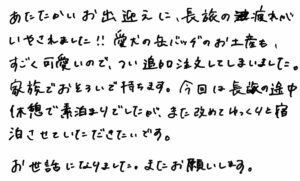 あたたかいお出迎えに、長旅の疲れが
いやされました!!愛犬の缶バッヂのお土産も、
すごく可愛いので、つい追加注文してしまいました。
家族でおそろいで持ちます。今回は長旅の途中
休憩で素泊まりでしたが、また改めてゆっくりと宿
泊させていただきたいです。
お世話になりました。またお願いします。